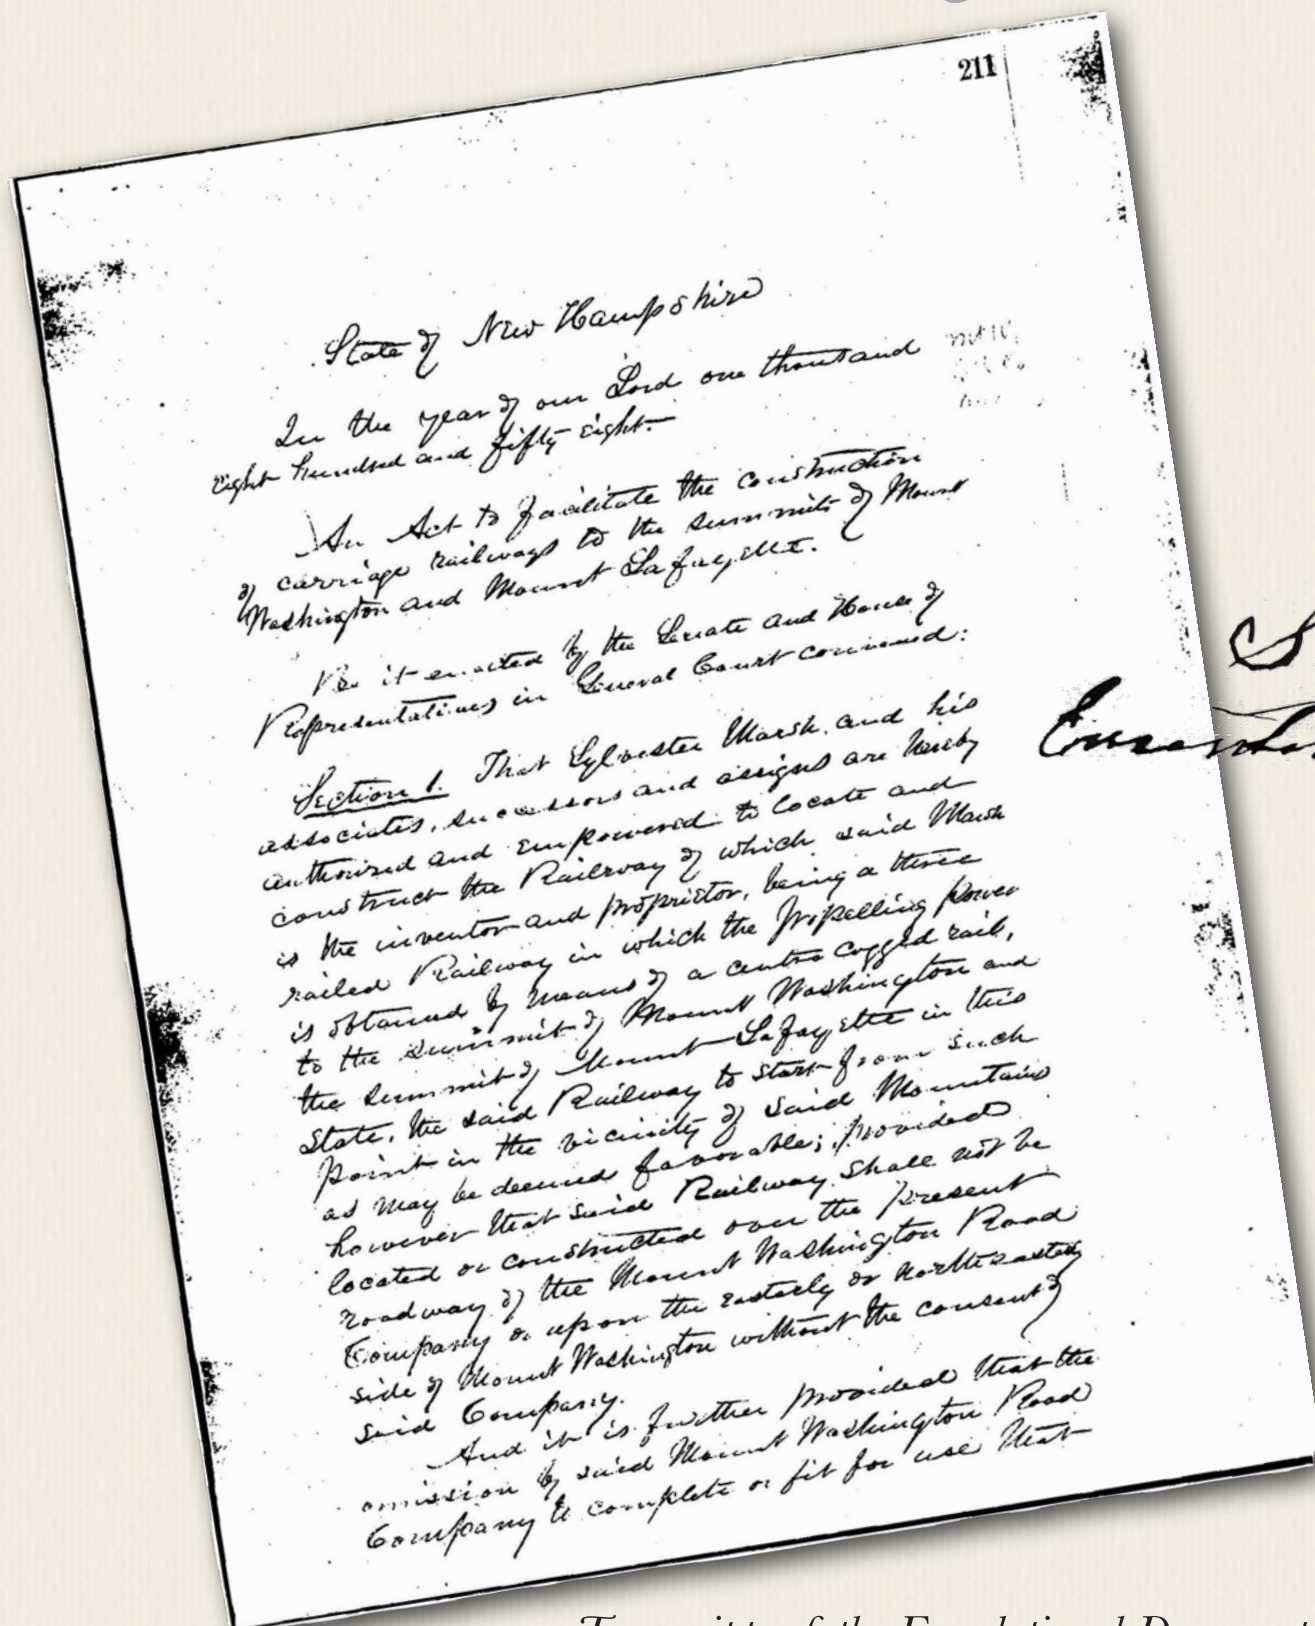 211
State of New Hampshire
In the year of our Lord one thousand
eight hundred and fifty eight.
An Act to facilitate the construction
of carriage railways to the summits of Mount
Washington and Mount Lafayette.
Be it enacted by the Senate and House of
Representatives in General Court convened:
Section 1. That Sylvester Marsh, and his
associates, successors and assigns are hereby
authorized and empowered to locate and
construct the Railway of which said Marsh
is the inventor and proprietor, being a three
railed Railway in which the propelling power
is obtained by means of a centre cogged rail,
to the summit of Mount Washington and
the summit of Mount Lafayette in this
State, the said Railway to start from such
point in the vicinity of said Mountains
as may be deemed favorable; provided
however that said Railway shall not be
located or constructed over the present
roadway of the Mount Washington Road
Company or upon the easterly or northeasterly
side of Mount Washington without the consent of
said Company.
And it is further provided that the
omission by said Mount Washington Road
Company to complete or fit for use that